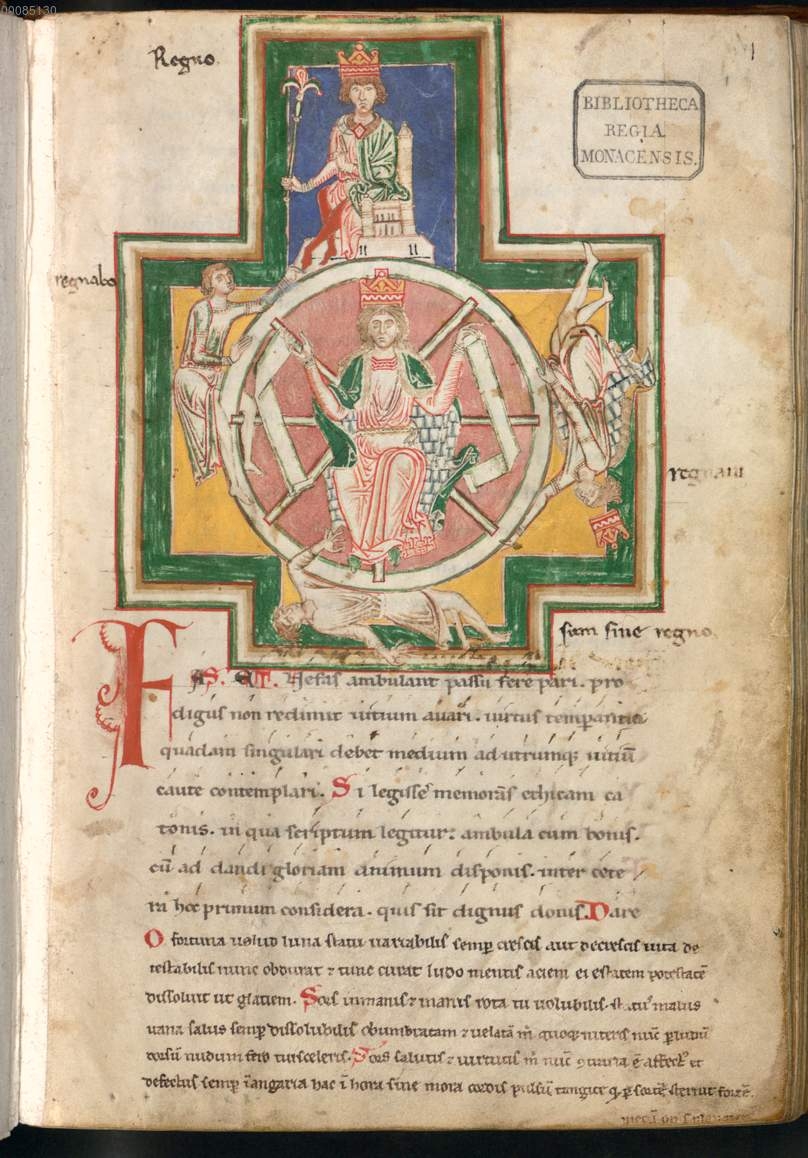 00085130
1
Regno.
BIBLIOTHECA
REGIA
MONACENSIS.
regnabo
regnaui
sum sine regno.
FAS. ET. Nefas ambulant passu fere pari. pro
digus non redimit uitium auari. uirtus temperantia
quadam singulari debet medium ad utrumq; uitiū
caute contemplari. Si legisse memorās ethicam ca
tonis. in qua scriptum legitur: ambula cum bonis.
cū ad dandi gloriam animum disponis. inter cete
ra hoc primum considera. quis sit dignus donis. Dare
O fortuna uelud luna statu uariabilis semp crescis aut decrescis uita de
testabilis nunc obdurat ⁊ tunc curat ludo mentis aciem egestatem potestatē
dissoluit ut glatiem. Sors inmanis ⁊ inanis rota tu uolubilis. status malus
uana salus semp dissolubilis obumbratam ⁊ uelatā m quoq; niteris nūc p ludū
dorsū nudum fero tui sceleris. Sors salutis ⁊ uirtutis m nūc 9traria ē affect' et
defectus semp ī angaria hac ī hora sine mora cordis pulsū tangite q p sortē sternit fortē.
mecū